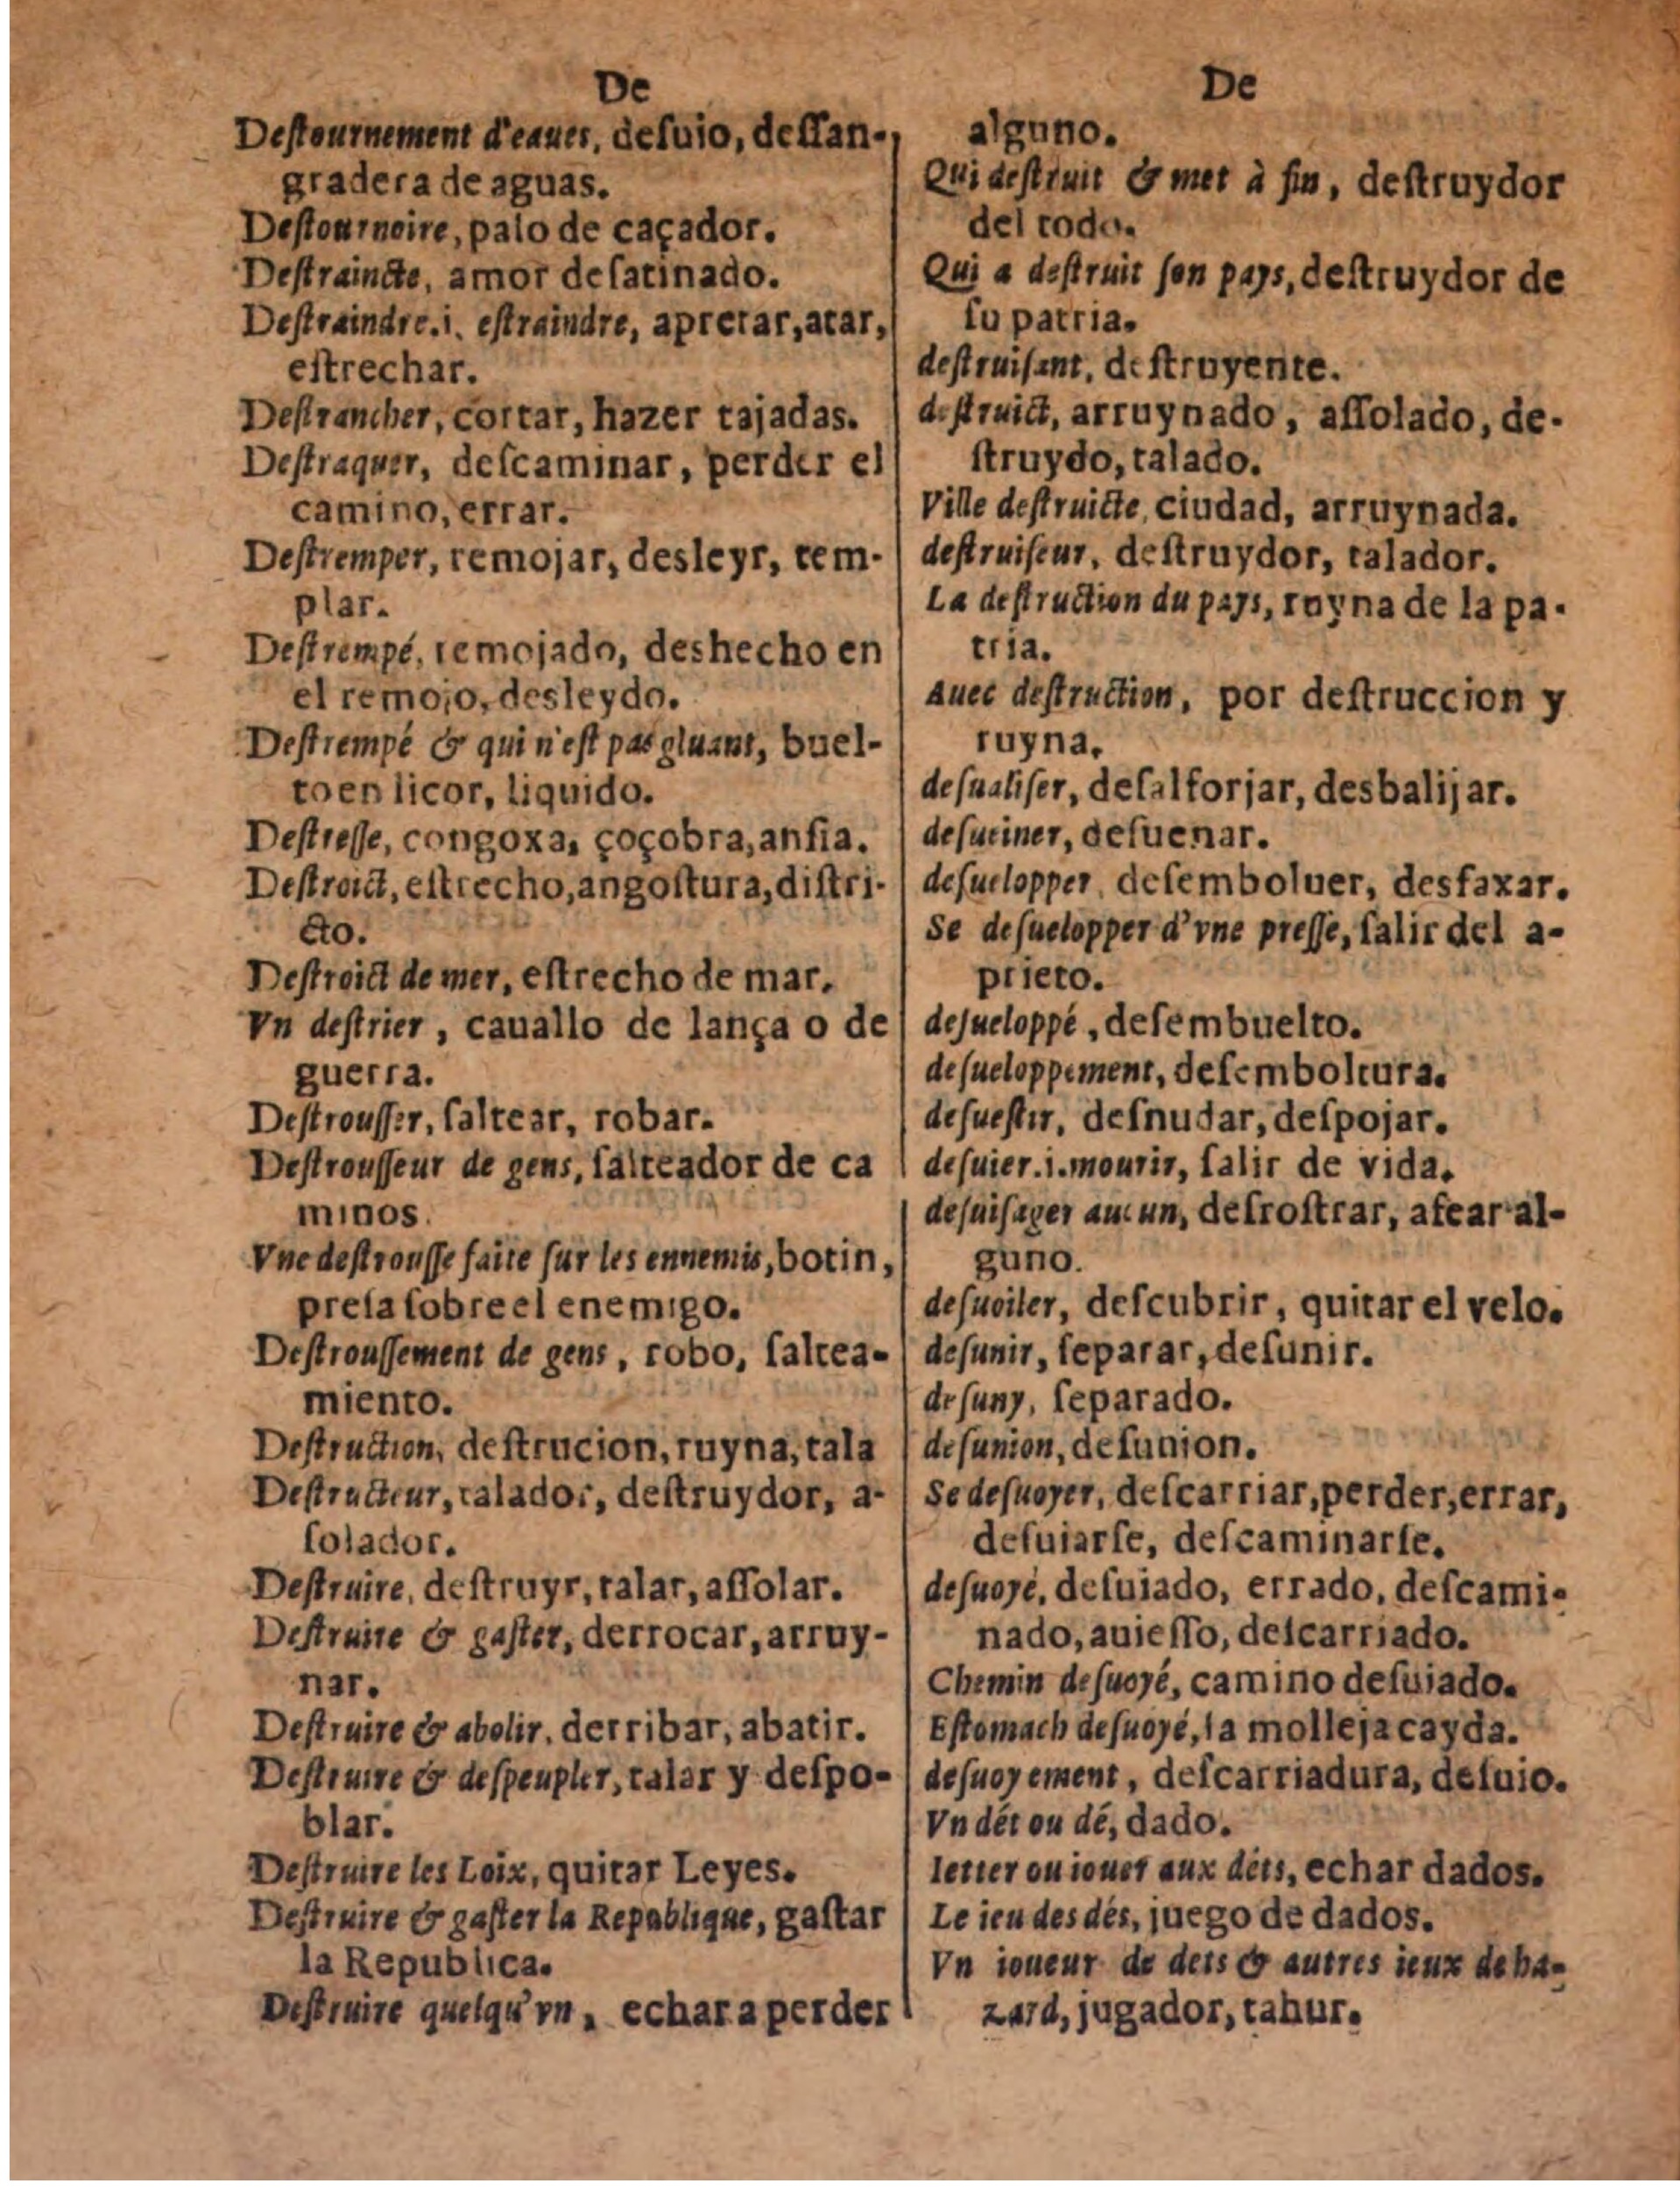 De
Deſtournement d'eaues, deſuio, deſſan-
gradera de aguas.
Deſtournoire, palo de caçador.
Deſtraincte, amor deſatinado.
Deſtraindre.i. eſtraindre, apretar, atar,
eſtrechar.
Deſtrancher, cortar, hazer tajadas.
Deſtraquer, deſcaminar, perder el
camino, errar.
Deſtremper, remojar, desleyr, tem-
plar.
Deſtrempé, remojado, deshecho en
el remojo, desleydo.
Deſtrempé & qui n'eſt pas gluant, buel-
to en licor, liquido.
Deſtreſſe, congoxa, çoçobra, anſia.
Deſtroict, eſtrecho, angoſtura, diſtri-
cto.
Deſtroict de mer, eſtrecho de mar.
Vn deſtrier, cauallo de lança o de
guerra.
Deſtrouſſer, ſaltear, robar.
Deſtrouſſeur de gens, ſalteador de ca
minos.
Vne deſtrouſſe faite ſur les ennemis, botin,
preſa ſobre el enemigo.
Deſtrouſſement de gens, robo, ſaltea-
miento.
Deſtruction, deſtrucion, ruyna, tala
Deſtructeur, talador, deſtruydor, a-
ſolador.
Deſtruire, deſtruyr, talar, aſſolar.
Deſtruire & gaſter, derrocar, arruy-
nar.
Deſtruire & abolir, derribar, abatir.
Deſtruire & deſpeupler, talar y deſpo-
blar.
Deſtruire les Loix, quitar Leyes.
Deſtruire & gaſter la Republique, gaſtar
la Republica.
Deſtruire quelqu'vn, echar a perder
De
alguno.
Qui deſtruit & met à fin, deſtruydor
del todo.
Qui a deſtruit ſon pays, deſtruydor de
ſu patria.
deſtruiſant, deſtruyente.
deſtruict, arruynado, aſſolado, de-
ſtruydo, talado.
Ville deſtruicte, ciudad, arruynada.
deſtruiſeur, deſtruydor, talador.
La deſtruction du pays, ruyna de la pa-
tria.
Auec deſtruction, por deſtruccion y
ruyna.
deſualiſer, deſalforjar, desbalijar.
deſueiner, deſuenar.
deſuelopper, deſemboluer, desfaxar.
Se deſuelopper d'vne preſſe, ſalir del a-
prieto.
deſueloppé, deſembuelto.
deſueloppement, deſemboltura.
deſueſtir, deſnudar, deſpojar.
deſuier.i.mourir, ſalir de vida.
deſuiſager aucun, deſroſtrar, afear al-
guno.
deſuoiler, deſcubrir, quitar el velo.
deſunir, ſeparar, deſunir.
deſuny, ſeparado.
deſunion, deſunion.
Se deſuoyer, deſcarriar, perder, errar,
deſuiarſe, deſcaminarſe.
deſuoyé, deſuiado, errado, deſcami-
nado, auieſſo, deſcarriado.
Chemin deſuoyé, camino deſuiado.
Eſtomach deſuoyé, la molleja cayda.
deſuoyement, deſcarriadura, deſuio.
Vn dét ou dé, dado.
Ietter ou iouer aux déts, echar dados.
Le ieu des dés, juego de dados.
Vn ioueur de dets & autres ieux de ha-
zard, jugador, tahur.